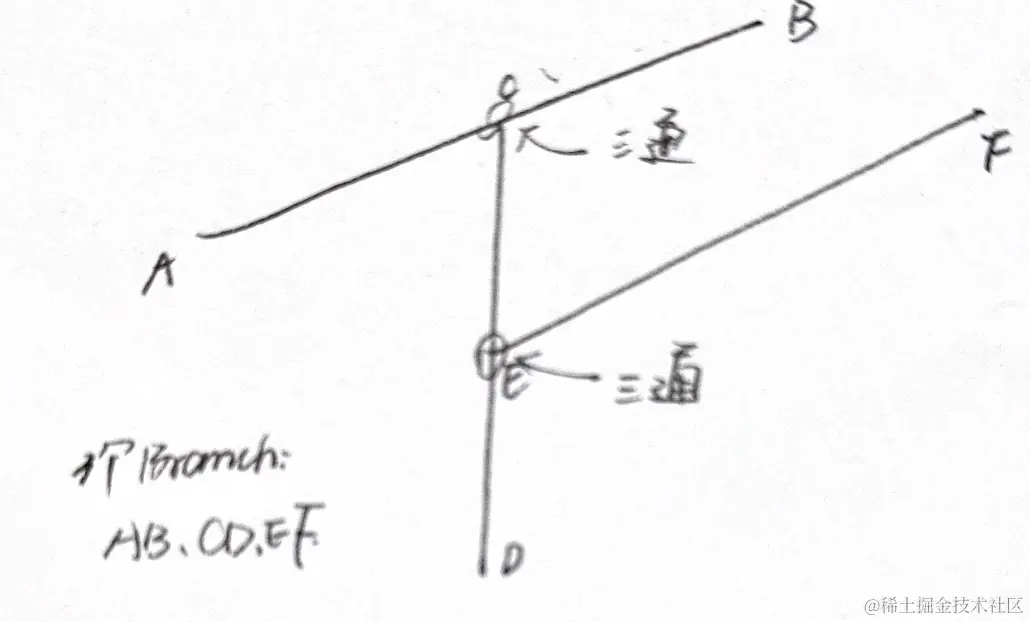 B
C
三通
F
A
E
三通
3个Branch:
AB、CD、EF
D
@稀土掘金技术社区